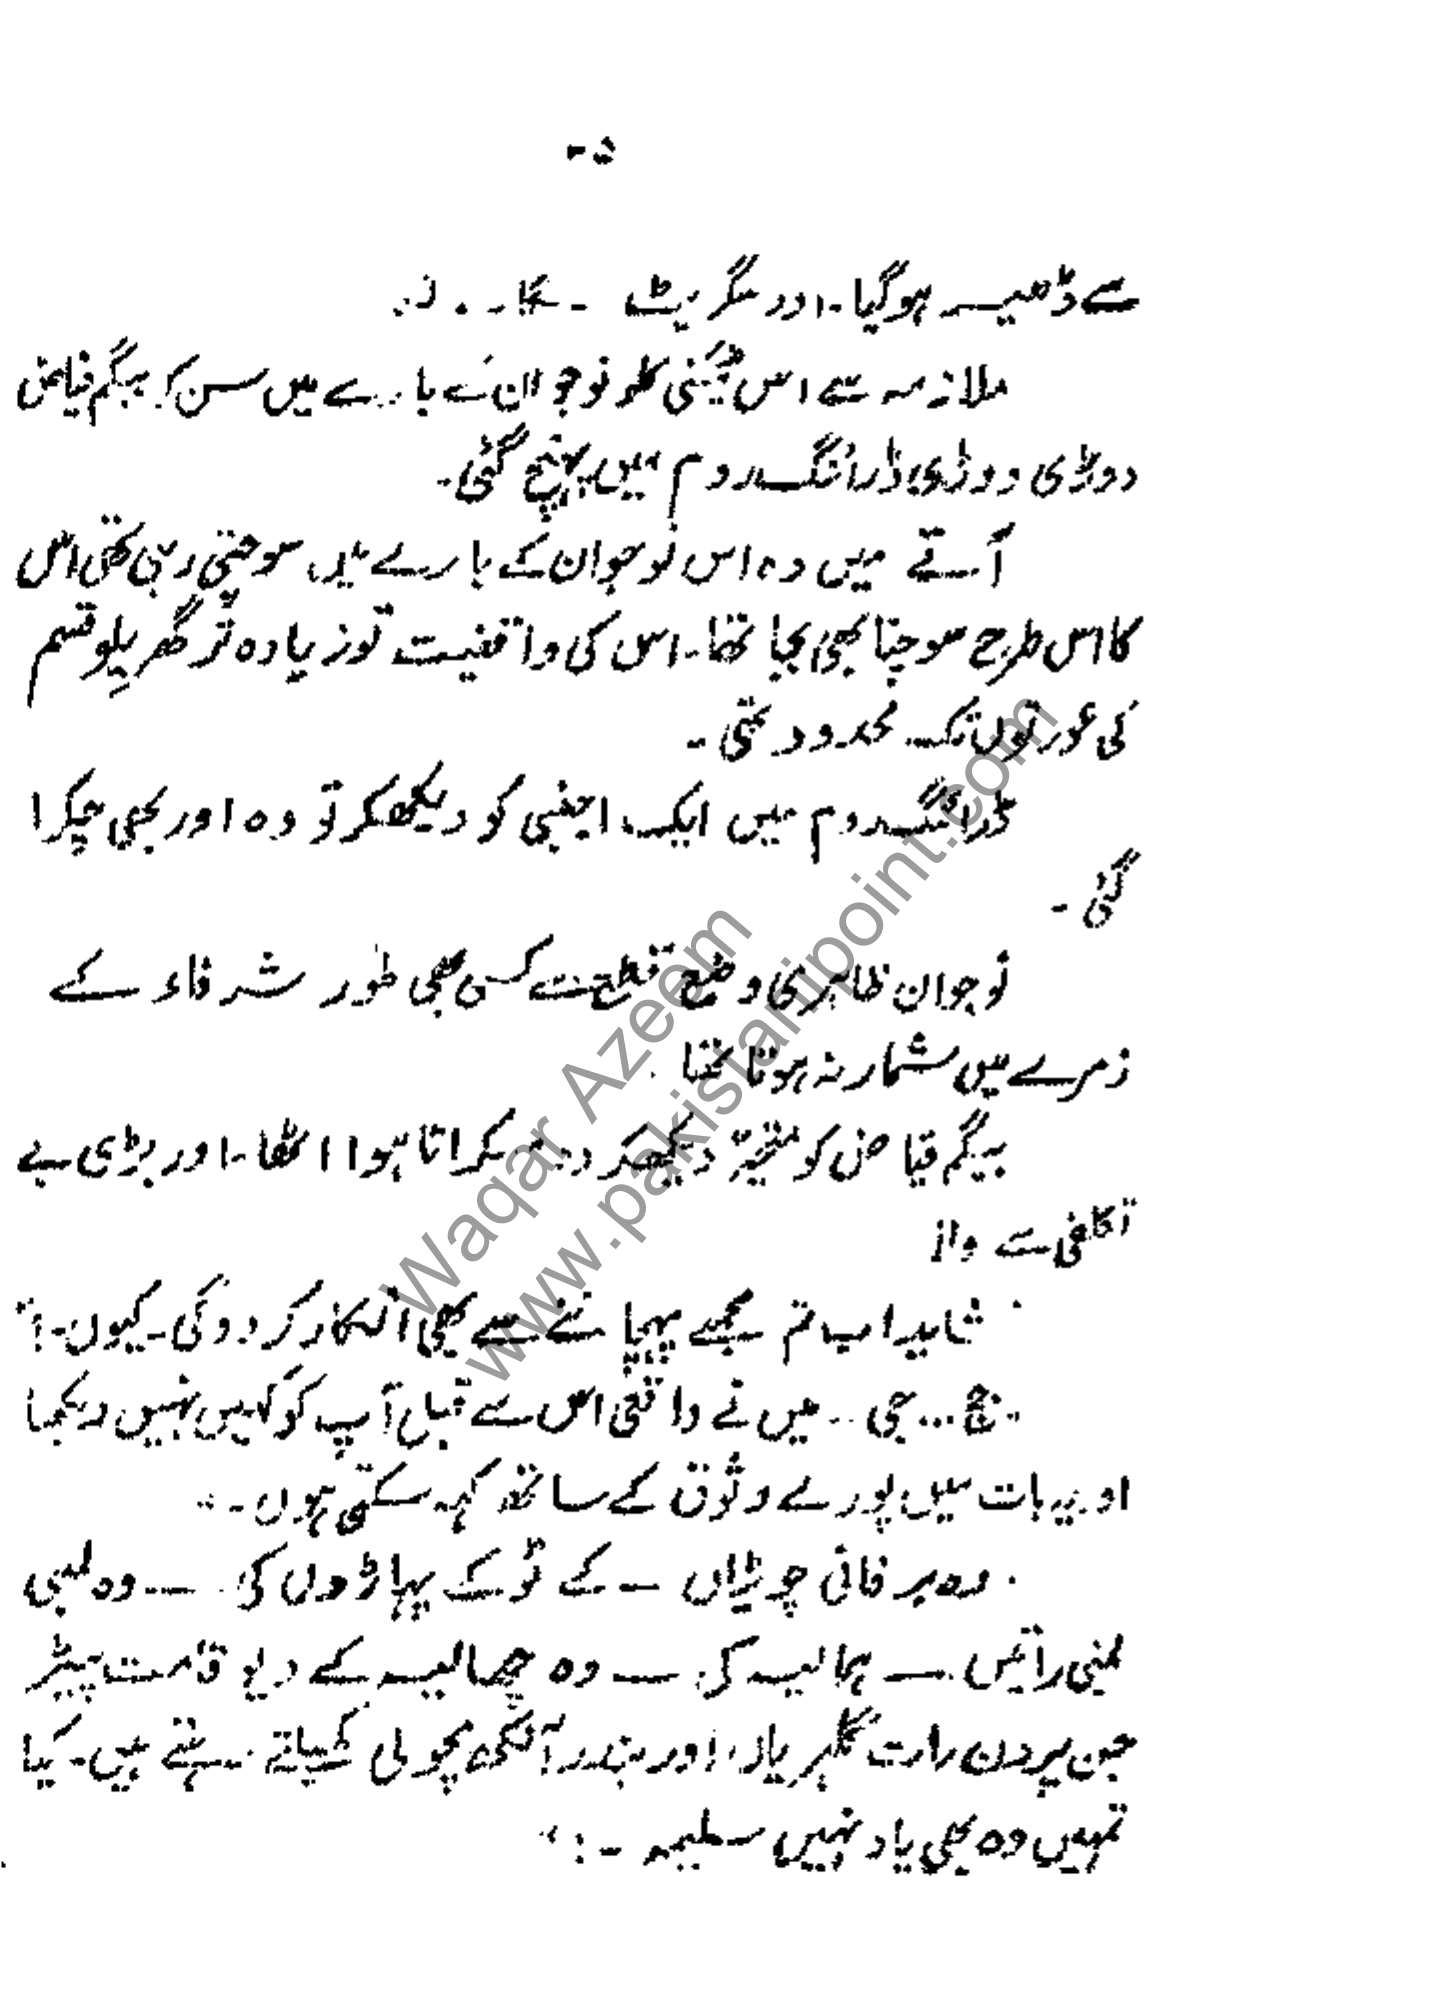 سے ڈھیر ہوگیا۔ اور سگریٹ
ملازمہ سے اس ٹیکنی کلر نوجوان کے بارے میں سن کر بیگم فیاض
دوڑی دوڑی ڈرائنگ روم میں پہنچ گئی۔
آتے میں وہ اس نوجوان کے بارے میں سوچتی رہی تھی اس
کا اس طرح سوچنا بھی بجا تھا۔ اس کی واقفیت تو زیادہ تر گھریلو قسم
کی عورتوں تک محدود تھی۔
ڈرائنگ روم میں ایک اجنبی کو دیکھکر تو وہ اور بھی چکرا
گئی۔
نوجوان ظاہری وضع قطع سے کسی بھی طور شرفاء کے
زمرے میں شمار نہ ہوتا تھا
بیگم فیاض کو متحیر دیکھکر وہ مسکراتا ہوا اٹھا۔ اور بڑی بے
تکلفی سے بولا
شاید اب تم مجھے پہچاننے سے بھی انکار کر دو گی۔ کیوں۔؟"
"جج... جی.. میں نے واقعی اس سے قبل آپ کو کہیں نہیں دیکھا
اور یہ بات میں پورے وثوق کے ساتھ کہہ سکتی ہوں۔"
"وہ برفانی چوٹیاں — کے ٹو کے پہاڑوں کی — وہ لمبی
لمبی راتیں — ہمالیہ کی — وہ چھالیہ کے دیو قامت پیڑ
جن پر دن رات گلہریاں اور بندر آنکھ مچولی کھیلتے رہتے ہیں۔ کیا
تمہیں وہ بھی یاد نہیں سلیمہ ۔؟"
Waqar Azeem
www.pakistanipoint.com